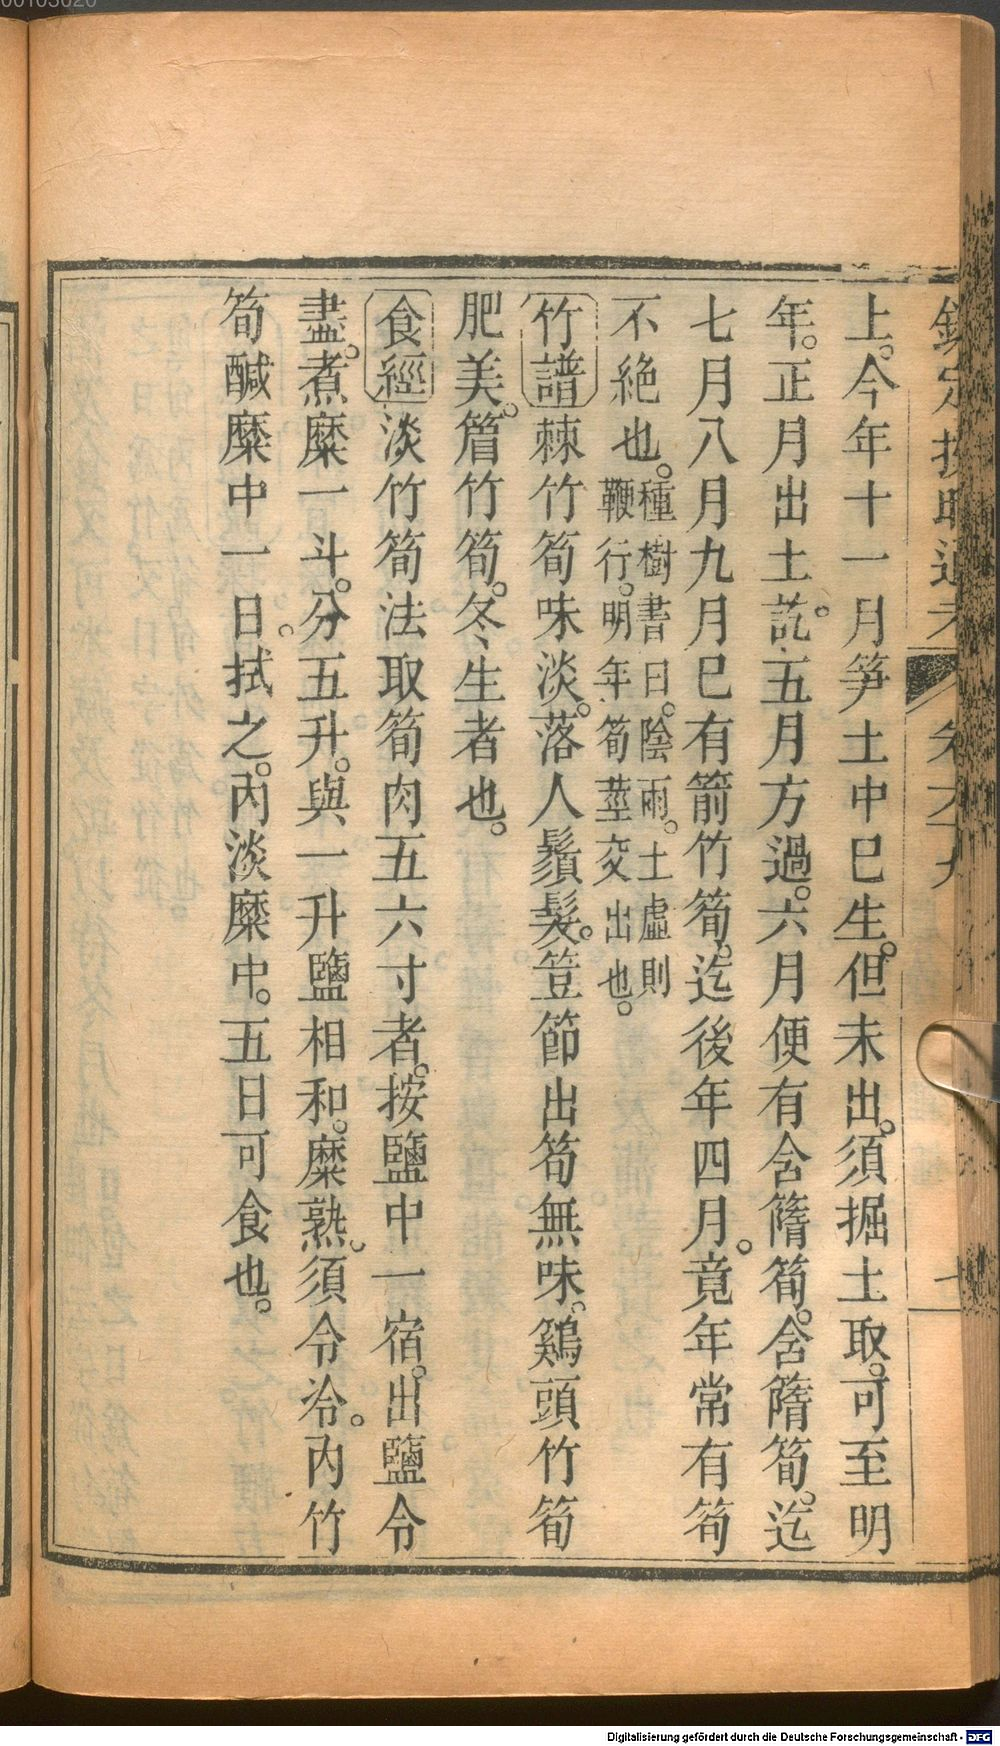 欽定授時通考 卷六十九 七
上。今年十一月笋土中已生。但未出。須掘土取。可至明
年。正月出土訖。五月方過。六月便有含𥳍筍。含𥳍筍。迄
七月八月九月巳有箭竹筍。迄後年四月。竟年常有筍
不絕也。種樹書曰。陰雨。土虛則
鞭行。明年筍莖交出也。
竹譜棘竹筍味淡。落人鬚髮。笠節出筍無味。鷄頭竹筍
肥美。䈽竹筍。冬生者也。
食經淡竹筍法取筍肉五六寸者。按鹽中一宿。出鹽令
盡。煮糜一斗。分五升。與一升鹽相和。糜熟。須令冷。內竹
筍醎糜中一日。拭之。內淡糜中。五日可食也。
Digitalisierung gefördert durch die Deutsche Forschungsgemeinschaft - DFG